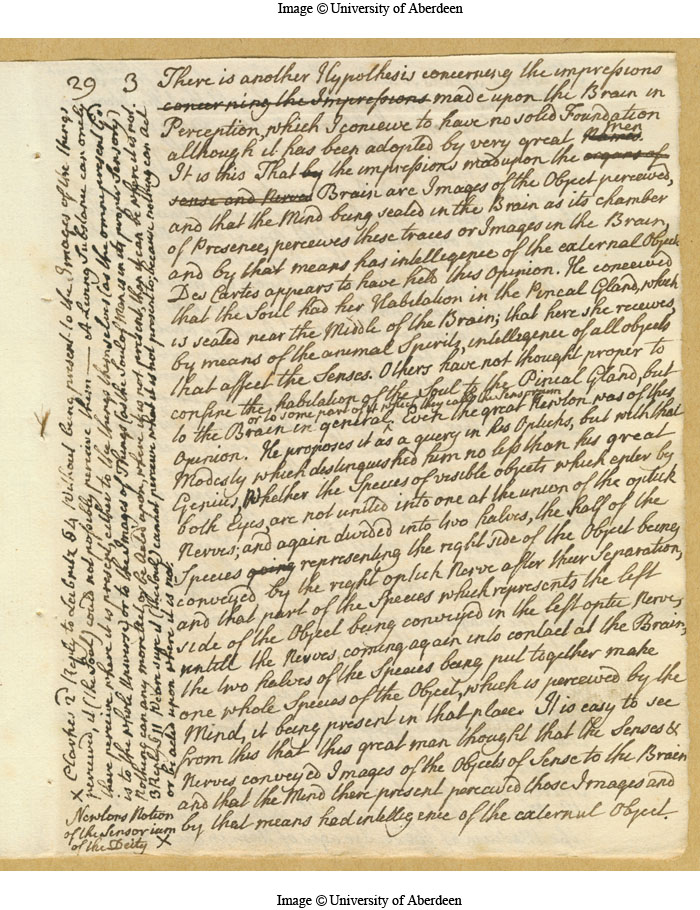 Image © University of Aberdeen
29 3
There is another Hypothesis concerning the impressions
concerning the Impressions made upon the Brain in
Perception, which I conceive to have no solid Foundation
although it has been adopted by very great men
It is this That by the impressions made upon the organs of
sense and Nerves Brain are Images of the Object perceived,
and that the Mind being seated in the Brain as its chamber
of Presence, perceives these traces or Images in the Brain,
and by that means has intellegence of the external Object
Des Cartes appears to have held this Opinion. He conceived
that the Soul had her Habitation in the Pineal Gland, which
is seated near the Middle of the Brain; that here she receives,
by means of the animal Spirits, intellegence of all objects
that affect the Senses. Others have not thought proper to
confine the habitation of the Soul to the Pineal Gland, but
or to some part of it which they call the Sensorium
to the Brain in general, Even the great Newton was of this
Opinion. He proposes it as a query in his Opticks, but with that
Modesty which distinguished him no less than his great
Genius, Whether the Species of visible objects which enter by
both Eyes are not united into one at the union of the optick
Nerves; and again divided into two halves, the half of the
Species going representing the right side of the Object being
conveyed by the right optick Nerve after their Separation,
and that part of the Species which represents the left
side of the Object being conveyed in the left optic Nerve,
untill the Nerves coming again into contact at the Brain,
the two halves of the Species being put together make
one whole Species of the Object, which is perceived by the
Mind, it being present in that place. It is easy to see
from this that this great man thought that the Senses &
Nerves conveyed Images of the Objects of Sense to the Brain
and that the Mind there present perceived those Images and
by that means had intelligence of the external Object.
x Clarkes 2d Reply to Leibnitz §4 Without being present to the Images of the things
perceived, it (the Soul) could not possibly perceive them — A Living Substance can only
there perceive where it is present either to the things themselves (as the omnipresent God
is to the whole Universe) or to the Images of Things (as the Soul of Man is in its proper Sensory)
Nothing can any more act or be acted upon, where it is not present, than it can be where it is not.
Reply §11 We are sure it (the Soul) cannot perceive what it is not present to, because nothing can act
or be acted upon where it is not
Newtons Notion
of the Sensorium
of the Deity x
Image © University of Aberdeen